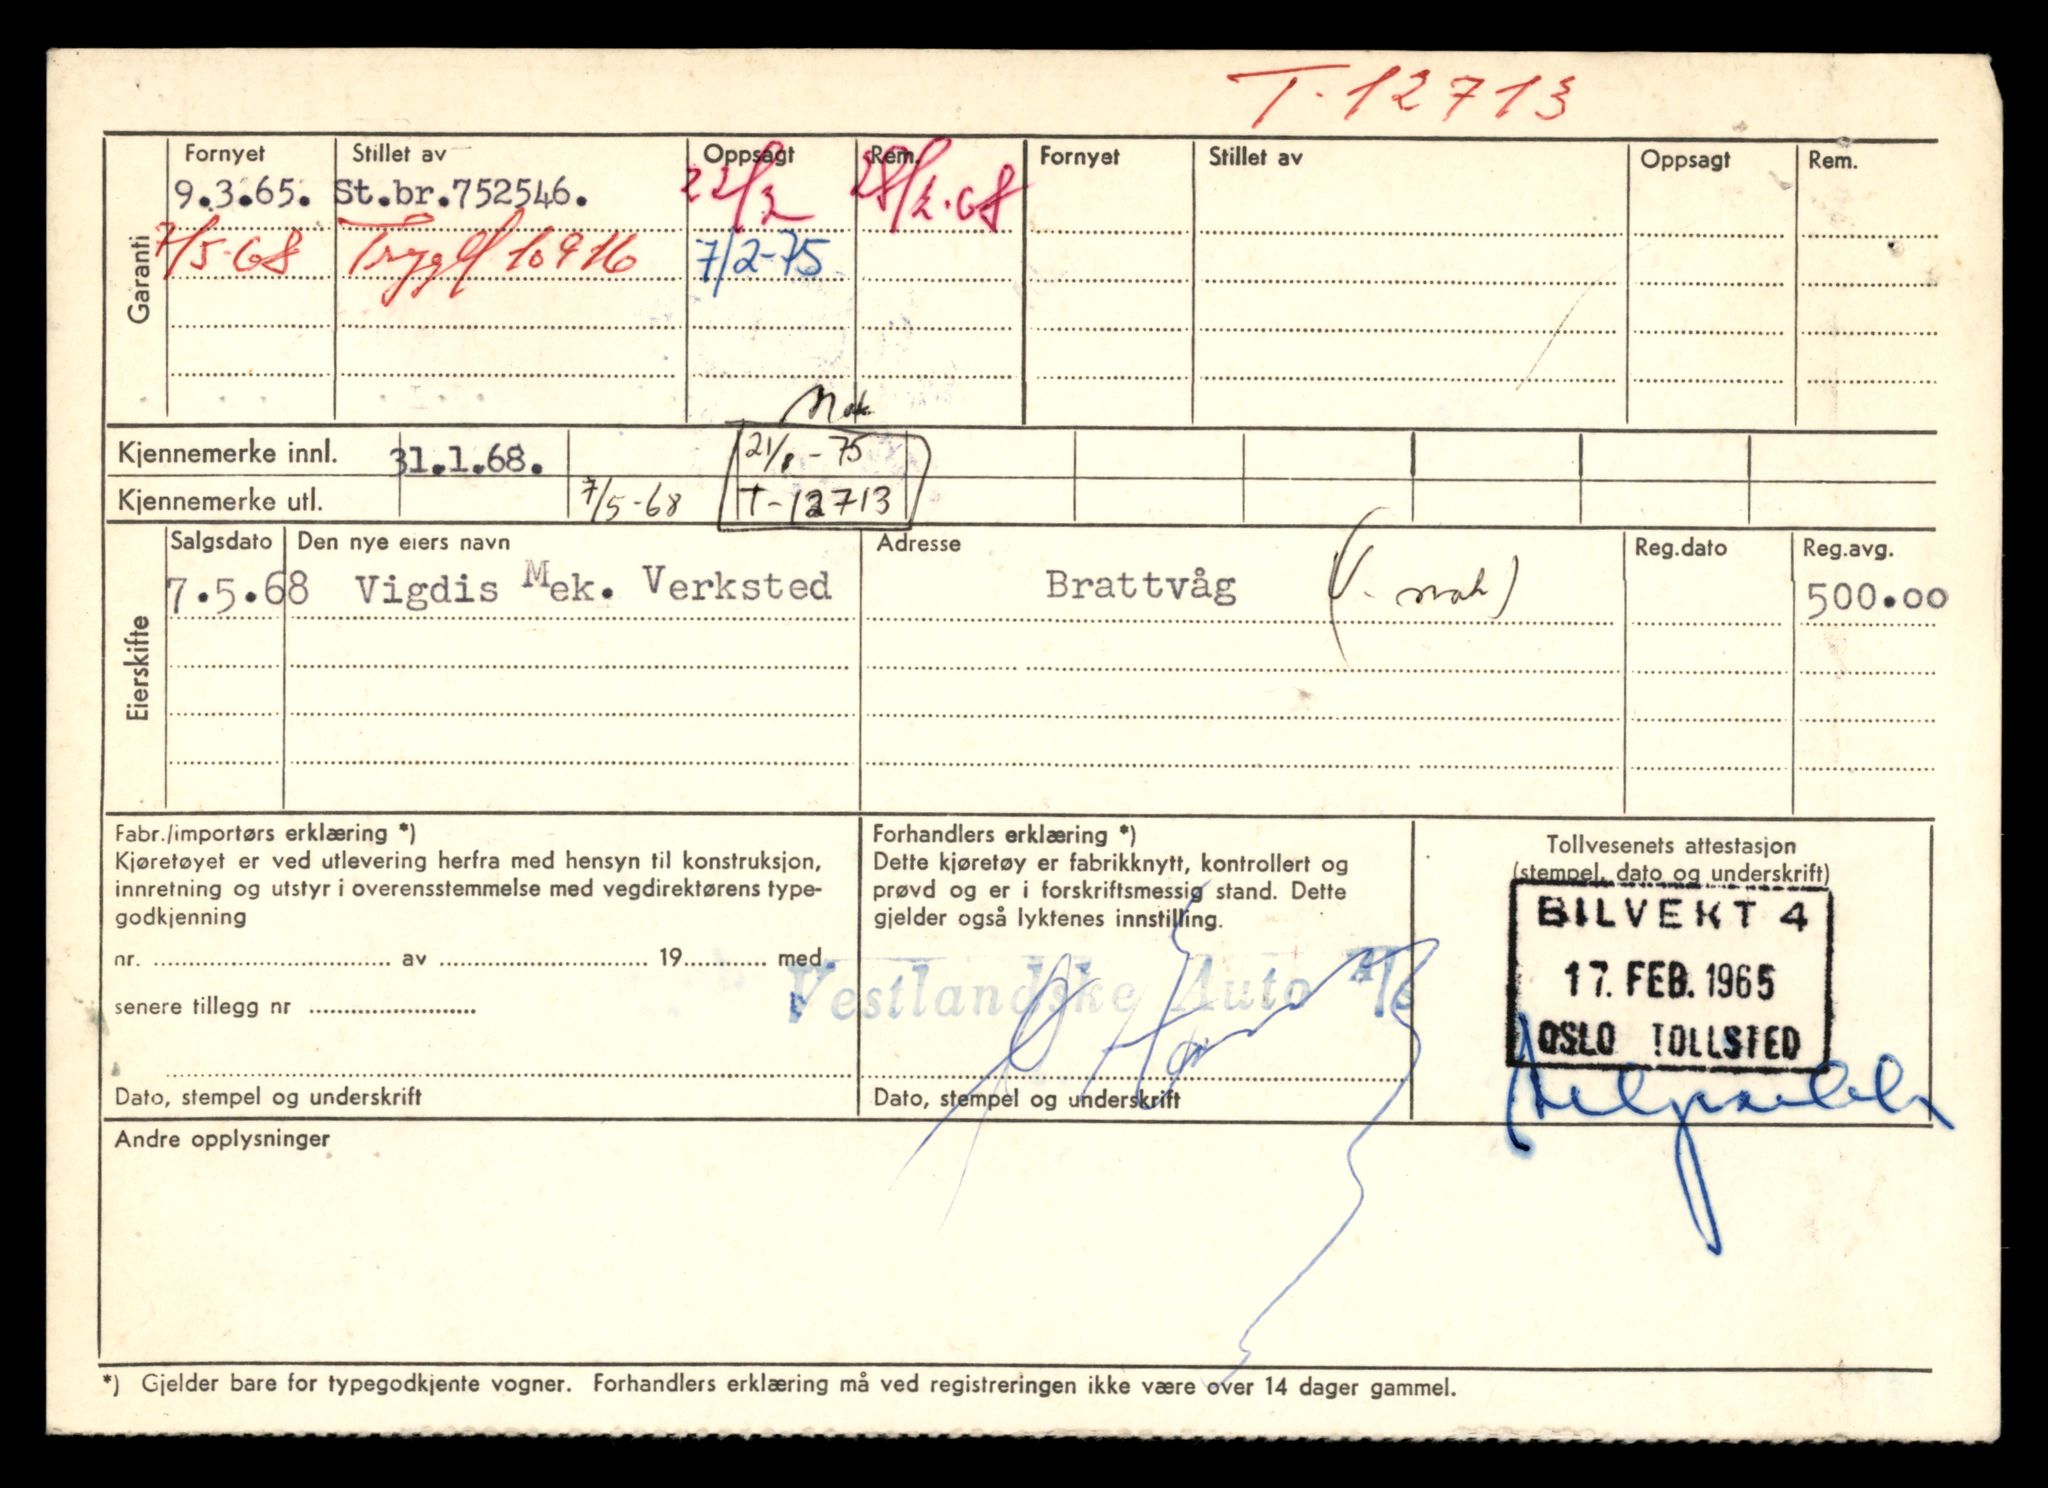 T-12713
Garanti
Fornyet Stillet av Oppsagt Rem. Fornyet Stillet av Oppsagt Rem.
9.3.65. St.br.752546. 22/2 28/2.68
7/5-68 Trygd 10916 7/2-75
Kjennemerke innl. 31.1.68. 21/8-75
Kjennemerke utl. 7/5-68 T-12713
Eierskifte
Salgsdato Den nye eiers navn Adresse Reg.dato Reg.avg.
7.5.68 Vigdis Mek. Verksted Brattvåg 500.00
Fabr./importørs erklæring *)
Kjøretøyet er ved utlevering herfra med hensyn til konstruksjon,
innretning og utstyr i overensstemmelse med vegdirektørens type-
godkjenning
nr. .......... av .......... 19.......... med
senere tillegg nr ..........
Dato, stempel og underskrift
Forhandlers erklæring *)
Dette kjøretøy er fabrikknytt, kontrollert og
prøvd og er i forskriftsmessig stand. Dette
gjelder også lyktenes innstilling.
Vestlandske Auto A/S
Dato, stempel og underskrift
Tollvesenets attestasjon
(stempel, dato og underskrift)
BILVEKT 4
17. FEB. 1965
OSLO TOLLSTED
Andre opplysninger
*) Gjelder bare for typegodkjente vogner. Forhandlers erklæring må ved registreringen ikke være over 14 dager gammel.